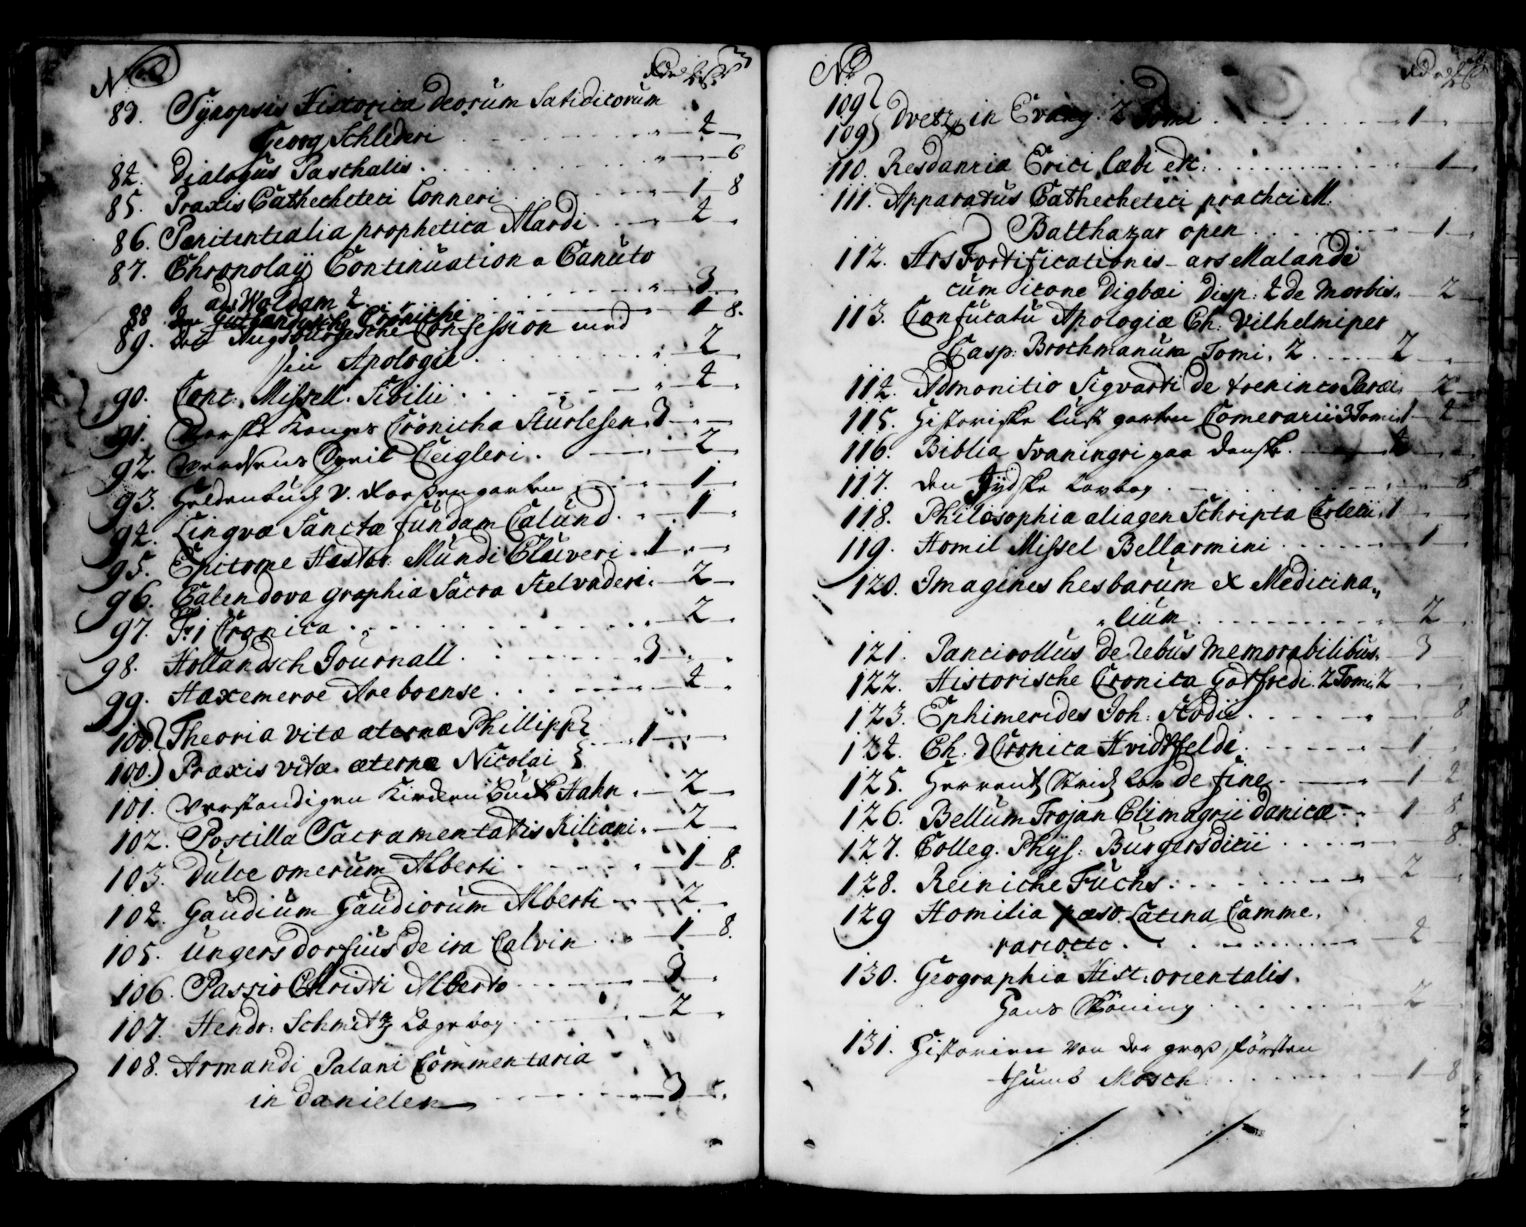 No
83. Synopsis Historica deorum fatidicorum
Georg Schlederi . . . 4
84. Dialogus Paschalis . . . 6
85. Praxis Cathecheteci Conneri . . . 1 8
86. Pænitentialia prophetica Mardi . . . 4
87. Chronolaÿ Continuation a Canuto
6 ad: Woldam 2. . . . 3
88 . . . Croniche . . . 1 8.
89. den Augsburgeschi Confession med
sin Apologie . . . 2
90. Conc. Missell. Sibilii . . . 4
91. Norske Konges Cronicha Sturlesen. 3
92. Verdsens Speil Ceigleri . . . 2
93. Heldenbuch v. Rosengarten . . . 1
94. Lingvæ Sanctæ fundam Calund . . . 1
95. Epitome Histor: Mundi Cluveri . 1
96. Calendova graphia Sacra Stelvaderi . 2
97. Fri Cronica . . . 2
98. Hollandsch Journall . . . 3
99. Haxemeroe Areboense . . . 4
100. Theoria vitæ æternæ Phillipp
100. Praxis vitæ æternæ Nicolai . . . 1
101. Verstandigen Kirchen Buch Hahn . 2
102. Postilla Sacramentatis Kiliani . 2
103. Dulce omerum Alberti . . . 1 8.
104. Gaudium Gaudiorum Alberti . . . 2
105. Ungersdorfius de ira Calvin . . . 1 8.
106. Passio Christi Alberto . . . 3
107. Hendr: Schmitz Lægebog . . . 2
108. Armandi Palani Commentaria
in danielem . . . 3
No
109
109 Dretz in Evang: 2 Tomi . . . 1
110. Resdanria Erici Læbi etc: . . . 1
111. Apparatus Cathecheteci practici M.
Balthazar open . . . 1
112. Ars Fortificationes ars Malandi
cum icone Digbæi Disp: 4 de Morbis. 2
113. Confutatu Apologiæ Ch: Vilhelmi per
Casp: Brochmanum Tomi. 2 . . . 2
114. Admonitio Sigvarti de . . . 2
115. Historische Lust garten Comerarii 3 Tomi 1 4
116. Biblia Svaningri paa Danske . . . 4
117. Den Jydske Lovbog . . . 8
118. Philosophia aliagen Schripta . . . 1
119. Homil Missel Bellarmini . . . 1
120. Imagines hesbarum et Medicina„
„lium . . . 2
121. Pancirollus de rebus memorabilibus. 3
122. Historische Cronica Gotfredi. 2 Tomi. 2
123. Ephimerides Joh: Stadii . . . 8
124. Ch: d Cronica Hvidtfelde . . . 1
125. . . . de fine . . . 1 2
126. Bellum Trojan Climagrii danicæ . 1 8
127. Colleg. Phys: Burgersdicii . . . 8.
128. Reiniche Fuchs . . . 2
129 Homilia pæso Latina Camme.
rariocto . . . 4
130. Geographia Hist: orientalis.
Hans Köning . . . 2
131. Historien von der gross fürsten
thumb Mosch . . . 1 8